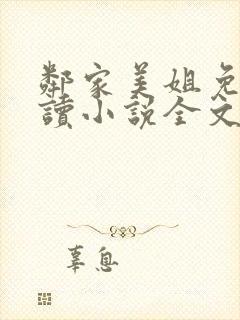 鄰家美姐免
讀小說全文
辜息